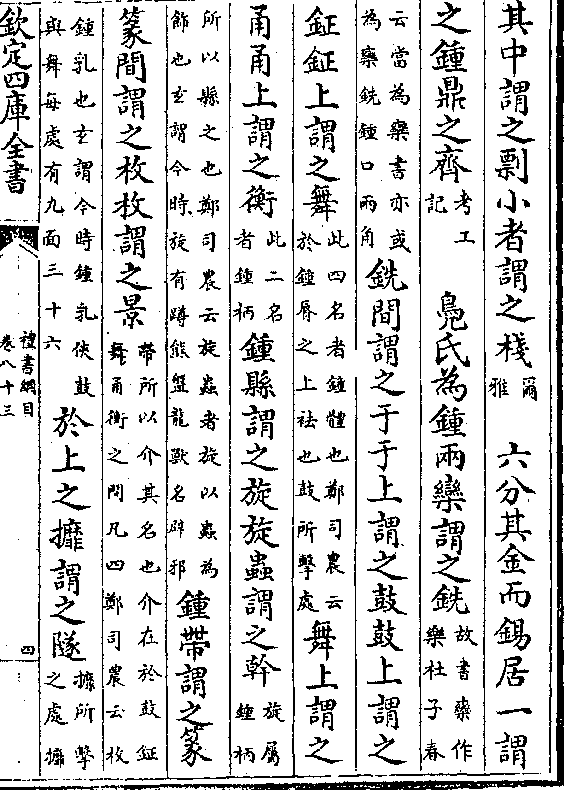 其中謂之剽小者謂之棧爾雅　六分其金而錫居一謂
之鍾鼎之齊考工記　鳧氏為鍾兩欒謂之銑故書欒作樂杜子春
云當為欒書亦或為欒銑鍾口兩角銑間謂之于于上謂之鼓鼓上謂之
鉦鉦上謂之舞此四名者鍾體也鄭司農云於鍾脣之上袪也鼓所擊處舞上謂之
甬甬上謂之衡此二名者鍾柄鍾縣謂之旋旋蟲謂之幹旋屬鍾柄
所以縣之也鄭司農云旋蟲者旋以蟲為飾也玄謂今時旋有蹲熊盤龍獸名辟邪鍾帶謂之篆
篆間謂之枚枚謂之景帶所以介其名也介在於鼓鉦舞甬衡之間凡四鄭司農云枚
鍾乳也玄謂今時鍾乳俠鼓與舞每處有九面三十六於上之攠謂之隧攠所擊之處攠
欽定四庫全書
禮書綱目
卷八十三
四